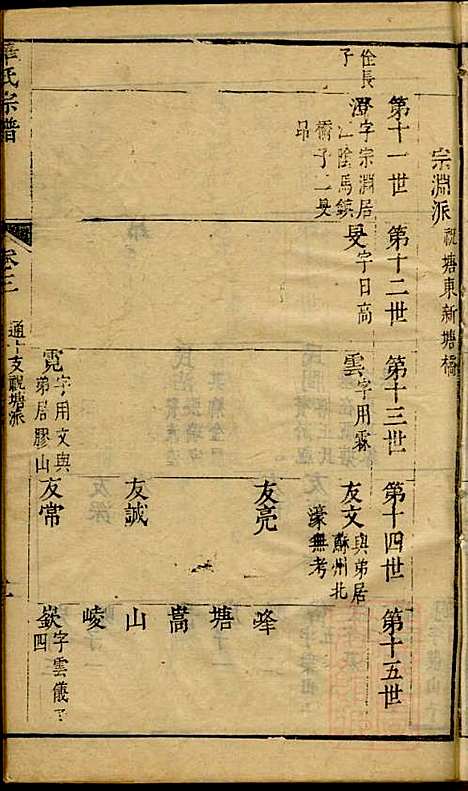 宗淵派
祝塘東新塘橋
第十一世
第十二世
第十三世
第十四世
第十五世
佺長子
澄
字宗淵居江陰馬鎮橋子二旻昂
旻
字日高
雲
字用霖
友文
與弟居蘇州北濠無考
友亮
峰
塘
嵩
友誠
山
崚
霓
字用文與弟居膠山
友常
嶔
字雲儀子四
氏宗譜
卷三
通十支祝塘派